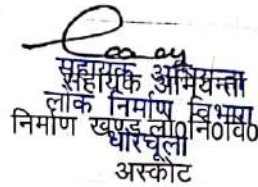 सहायक अभियन्ता
सहायक अभियन्ता
लोक निर्माण विभाग
निर्माण खण्ड लो०नि०वि०
धारचूला
अस्कोट